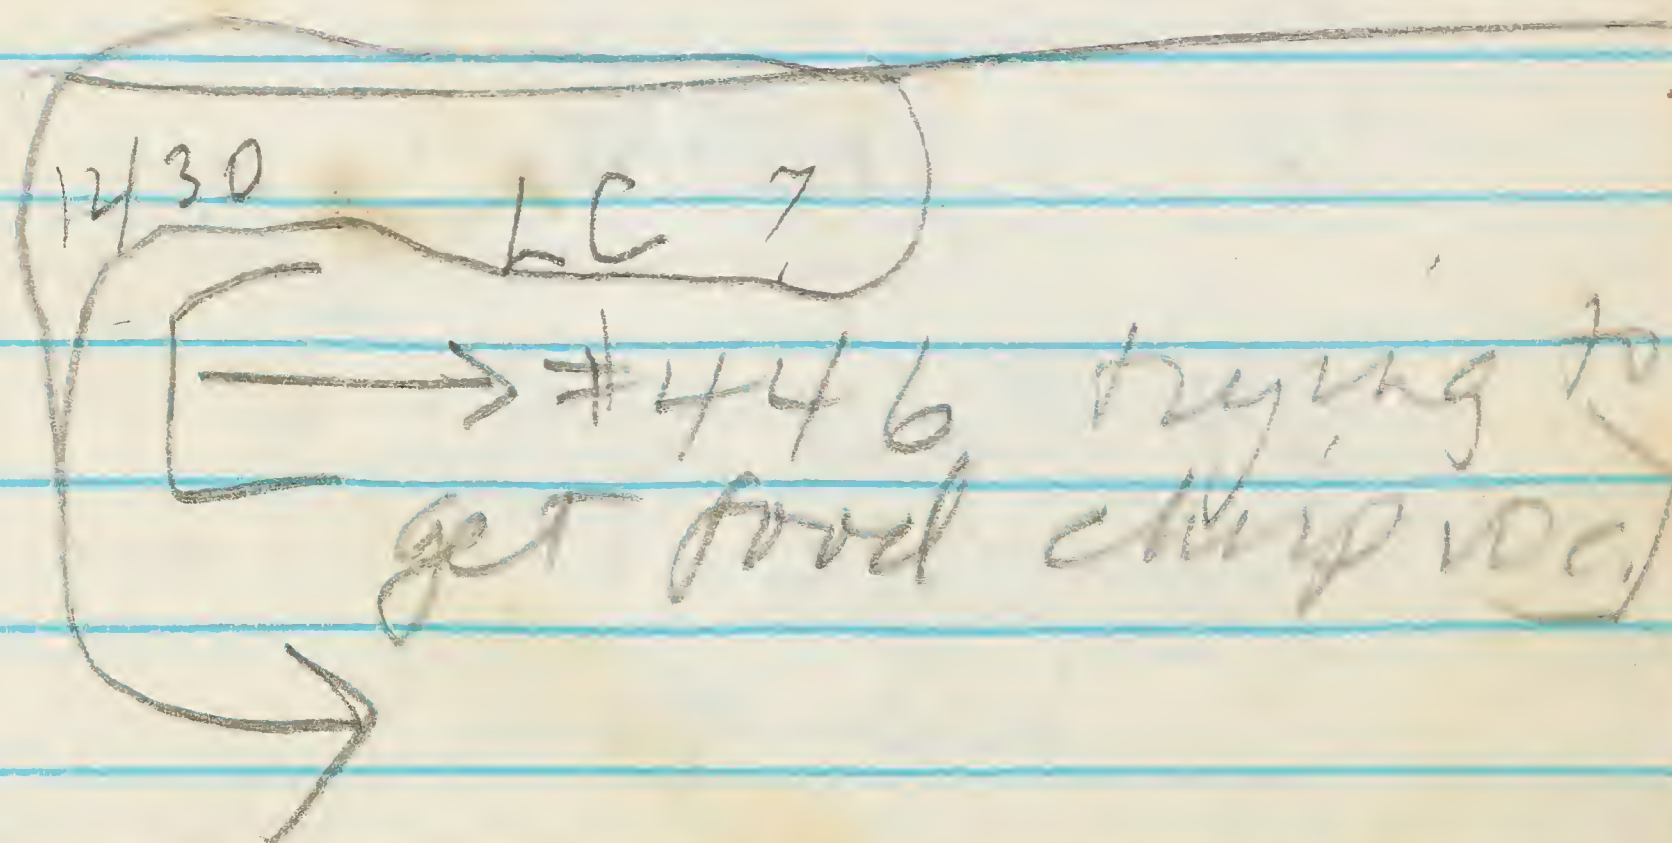 12/30 LC 7
→ #446 trying to
get food chirp voc